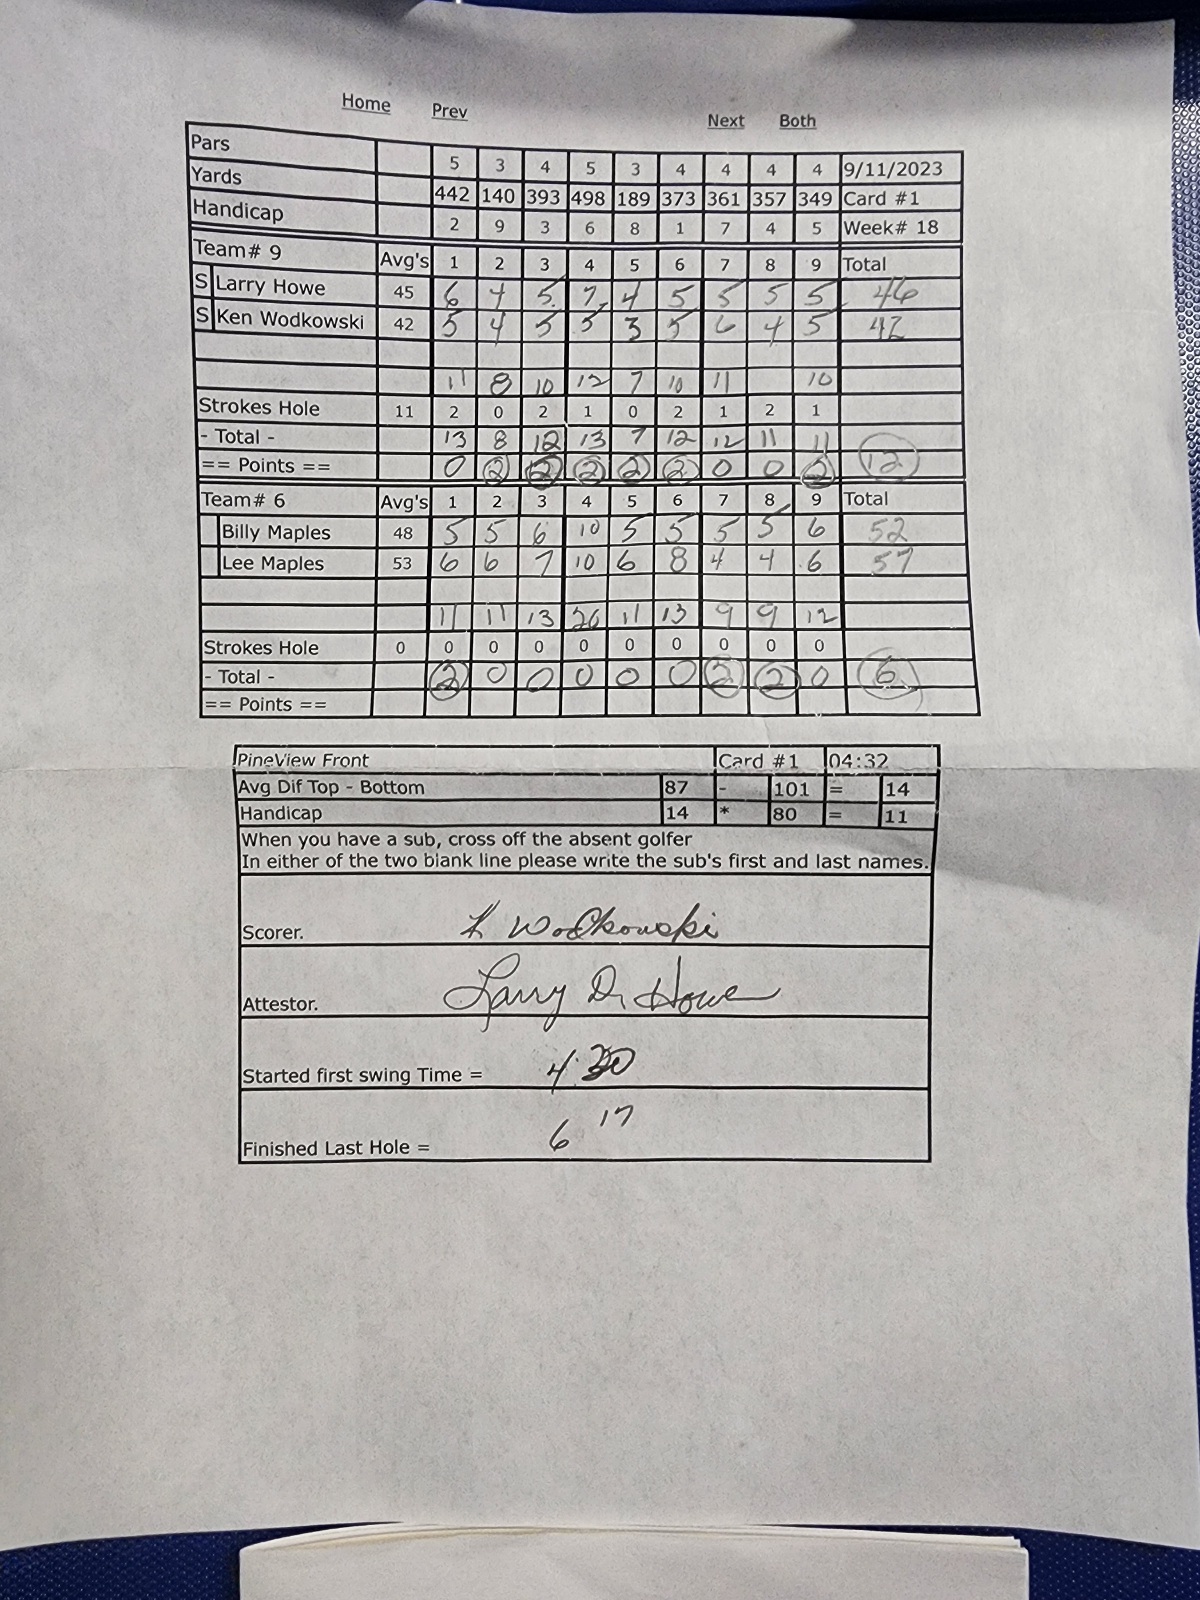 Home Prev Next Both
Pars 5 3 4 5 3 4 4 4 4 9/11/2023
Yards 442 140 393 498 189 373 361 357 349 Card #1
Handicap 2 9 3 6 8 1 7 4 5 Week# 18
Team# 9 Avg's 1 2 3 4 5 6 7 8 9 Total
S Larry Howe 45 6 4 5 7 4 5 5 5 5 46
S Ken Wodkowski 42 5 4 5 5 3 5 6 4 5 42
11 8 10 12 7 10 11 10
Strokes Hole 11 2 0 2 1 0 2 1 2 1
- Total - 13 8 12 13 7 12 12 11 11
== Points == 0 2 2 2 2 2 0 0 2 12
Team# 6 Avg's 1 2 3 4 5 6 7 8 9 Total
Billy Maples 48 5 5 6 10 5 5 5 5 6 52
Lee Maples 53 6 6 7 10 6 8 4 4 6 57
11 11 13 20 11 13 9 9 12
Strokes Hole 0 0 0 0 0 0 0 0 0 0
- Total - 2 0 0 0 0 0 2 2 0 6
== Points ==
PineView Front Card #1 04:32
Avg Dif Top - Bottom 87 - 101 = 14
Handicap 14 * 80 = 11
When you have a sub, cross off the absent golfer
In either of the two blank line please write the sub's first and last names.
Scorer. K Wodkowski
Attestor. Larry D. Howe
Started first swing Time = 4:30
Finished Last Hole = 6 17